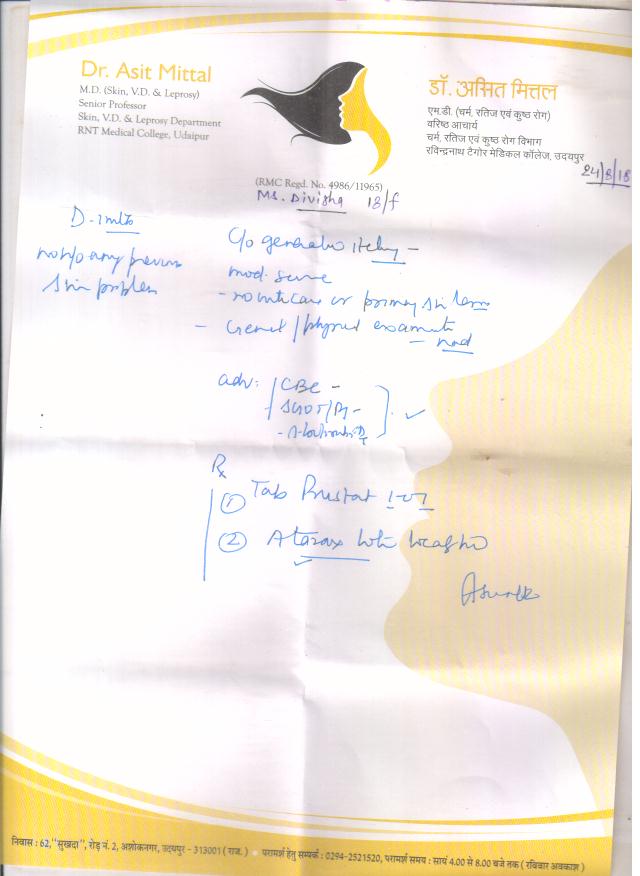 Dr. Asit Mittal
M.D. (Skin, V.D. & Leprosy)
Senior Professor
Skin, V.D. & Leprosy Department
RNT Medical College, Udaipur
डॉ. असित मित्तल
एम.डी. (चर्म, रतिज एवं कुष्ठ रोग)
वरिष्ठ आचार्य
चर्म, रतिज एवं कुष्ठ रोग विभाग
रविन्द्रनाथ टैगोर मेडिकल कॉलेज, उदयपुर
24/8/18
(RMC Regd. No. 4986/11965)
Ms. Divisha 18/f
D-
C/o itching -
no h/o any previous
skin problem
mod. severe
- no urticaria or primary skin lesion
- General/physical examination
- nad
adv: CBC -
Rx
① Tab
② Atarax
निवास : 62, "सुखदा", रोड़ नं. 2, अशोकनगर, उदयपुर - 313001 ( राज. ) • परामर्श हेतु सम्पर्क : 0294-2521520, परामर्श समय : सायं 4.00 से 8.00 बजे तक ( रविवार अवकाश )